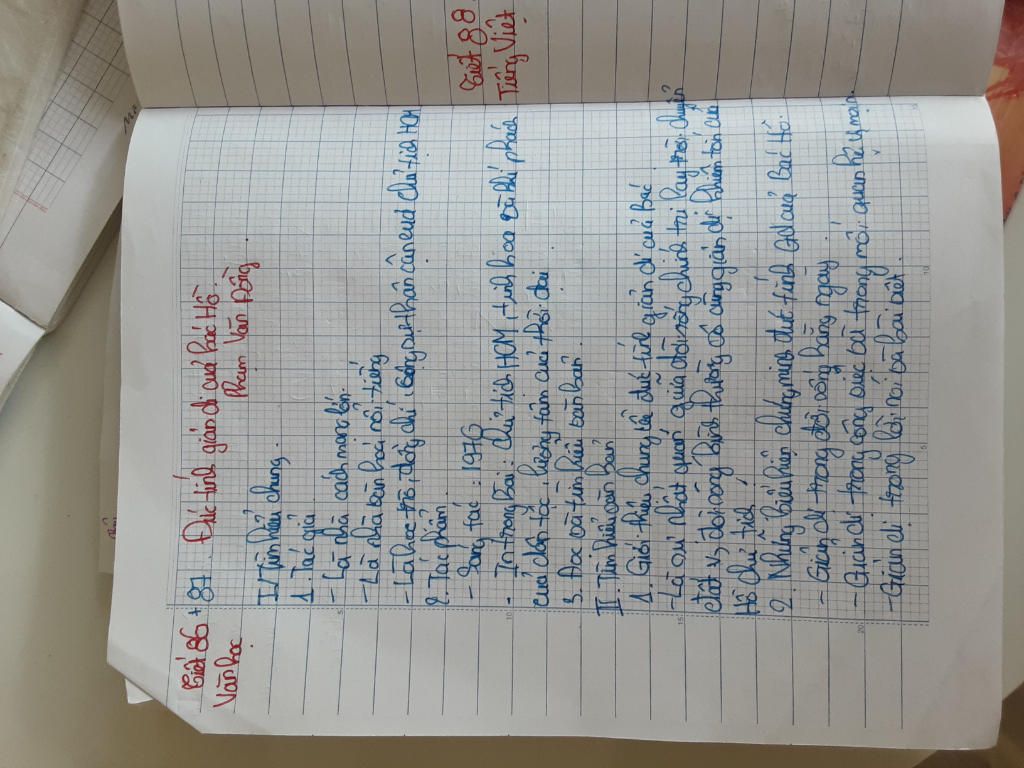 Tiết 86 + 87
Văn học
Đức tính giản dị của Bác Hồ
Phạm Văn Đồng
I/ Tìm hiểu chung
1. Tác giả
- Là nhà cách mạng lớn.
- Là nhà văn hoá nổi tiếng
- Là học trò, đồng chí sống thân cận chủ tịch HCM
2. Tác phẩm
- Sáng tác: 1970
- Ta trong bài: Chủ tịch HCM, tinh hoa và khí phách
của dân tộc, lương tâm của thời đại
3. Đọc và tìm hiểu văn bản.
II. Tìm hiểu văn bản
1. Giới thiệu chung về đức tính giản dị của Bác
- Là sự nhất quán giữa đời sống chính trị lay trời chuyển
đất với đời sống bình thường vô cùng giản dị, khiêm tốn của
Hồ chủ tịch.
2. Những biểu hiện, chứng minh đức tính GD của Bác Hồ.
- Giản dị trong đời sống hằng ngày
- Giản dị trong công việc và trong mối quan hệ
- Giản dị trong lời nói và bài viết
Tiết 88
Tiếng Việt